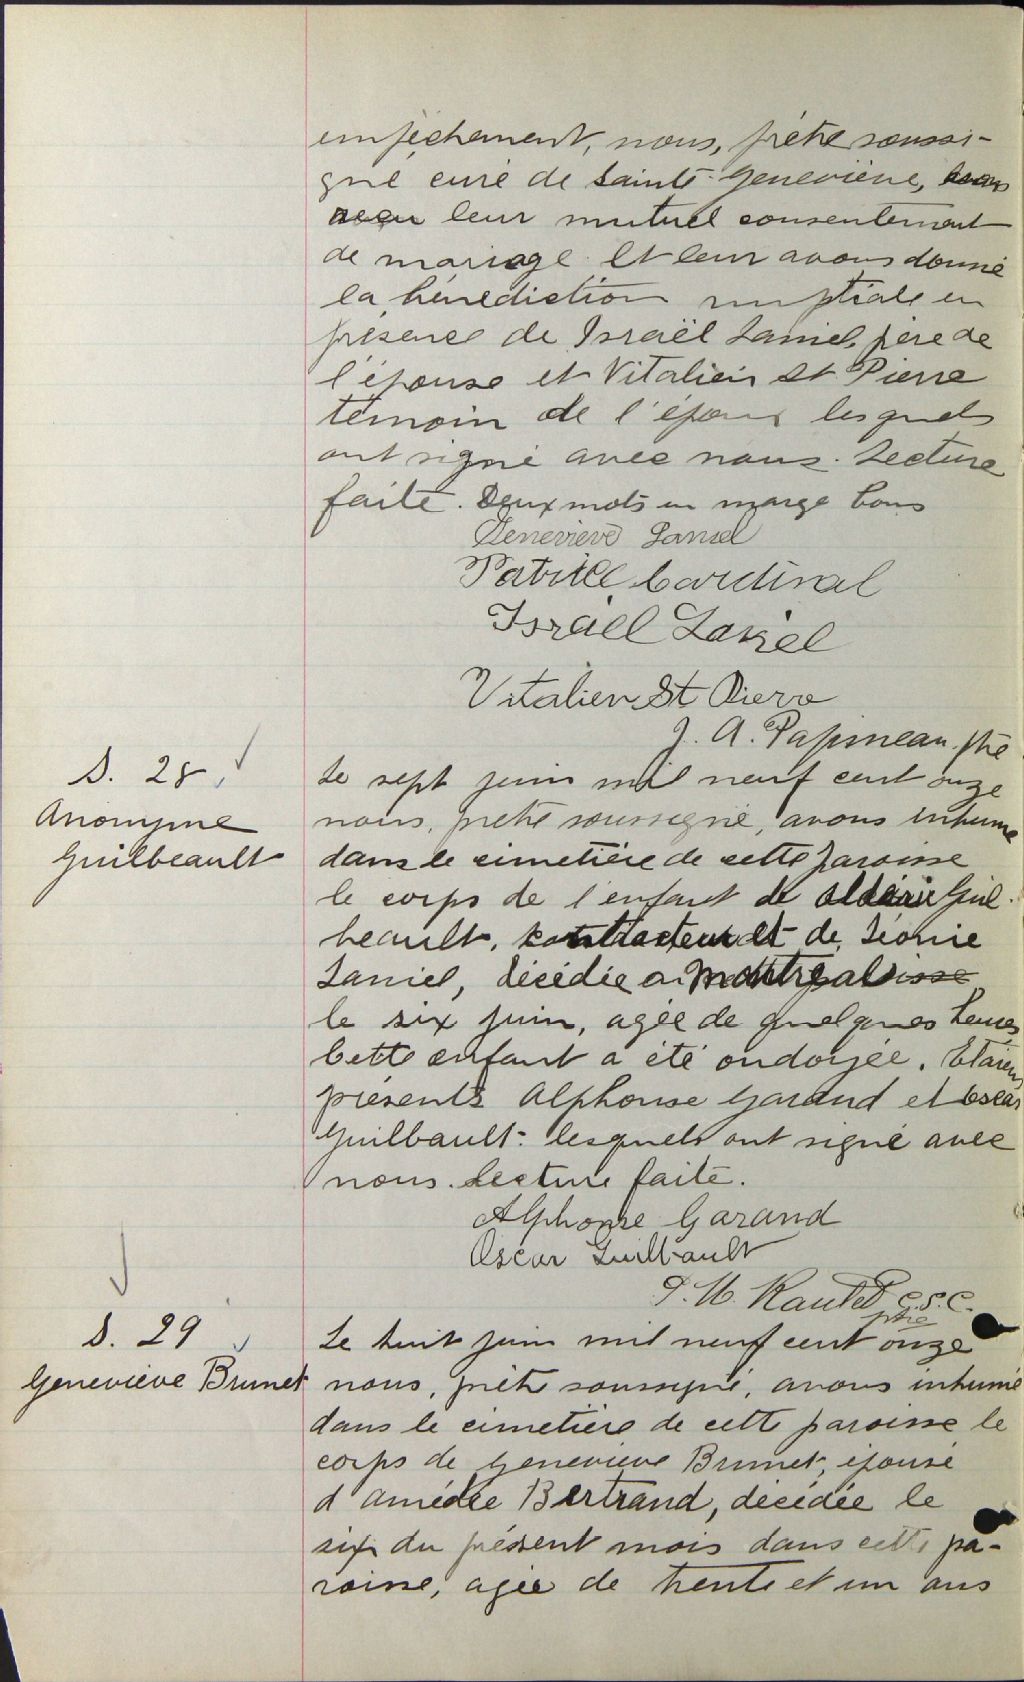 empèchement, nous, prêtre soussi-
gné curé de Sainte Geneviève, avons
recu leur mutuel consentement
de mariage et leur avons donné
la bénédiction nuptiale en
présence de Israël Laniel, père de
l'épouse et Vitalien St Pierre
témoin de l'époux lesquels
ont signé avec nous. Lecture
faite. Deux mots en marge bons
Geneviève Laniel
Patrice Cardinal
Israël Laniel
Vitalien St Pierre
J. A. Papineau ptre
S. 28
Anonyme
Guilbeault
Le sept juin mil neuf cent onze
nous, prêtre soussigné, avons inhumé
dans le cimetière de cette paroisse
le corps de l'enfant de Aldéric Guil-
beault, contracteur et de Léonie
Laniel, décédée à Montréal
le six juin, agée de quelques heures
Cette enfant a été ondoyée. Etaient
présents Alphonse Garand et Oscar
Guilbault lesquels ont signé avec
nous. Lecture faite.
Alphonse Garand
Oscar Guilbault
c.s.c.
ptre
S. 29
Geneviève Brunet
Le huit juin mil neuf cent onze
nous, prêtre soussigné, avons inhumé
dans le cimetière de cette paroisse le
corps de Geneviève Brunet, épouse
d'Amédée Bertrand, décédée le
six du présent mois dans cette pa-
roisse, agée de trente et un ans